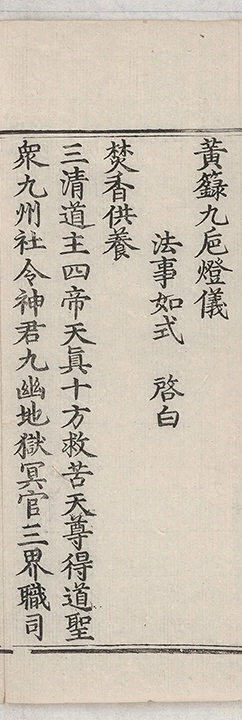 黃籙九巵燈儀
法事如式　啓白
焚香供養
三清道主四帝天眞十方救苦天尊得道聖
衆九州社令神君九幽地獄冥官三界職司